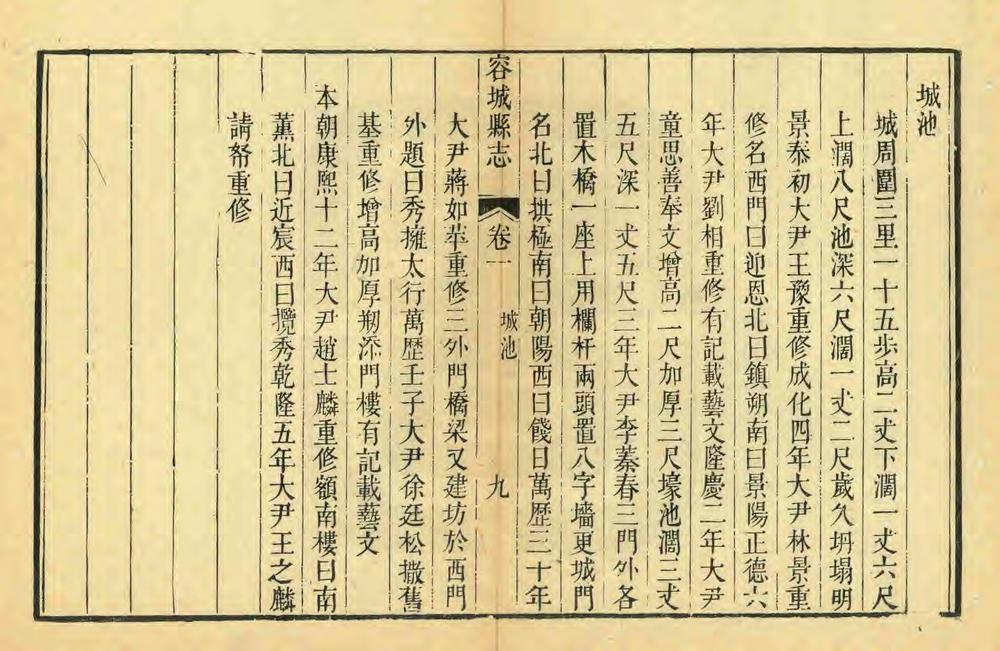 城池
城周圍三里一十五步高二丈下濶一丈六尺
上濶八尺池深六尺濶一丈二尺歲久坍塌明
景泰初大尹王豫重修成化四年大尹林景重
修名西門曰迎恩北曰鎮朔南曰景陽正德六
年大尹劉相重修有記載藝文隆慶二年大尹
童思善奉文增高二尺加厚三尺壕池濶三丈
五尺深一丈五尺三年大尹李蓁春三門外各
置木橋一座上用欄杆兩頭置八字墻更城門
名北曰拱極南曰朝陽西曰餞日萬歷三十年
容城縣志 卷一 城池 九
大尹蔣如苹重修三外門橋梁又建坊於西門
外題曰秀擁太行萬歷壬子大尹徐廷松撒舊
基重修增高加厚剏添門樓有記載藝文
本朝康熙十二年大尹趙士麟重修額南樓曰南
薰北曰近宸西曰攬秀乾隆五年大尹王之麟
請帑重修